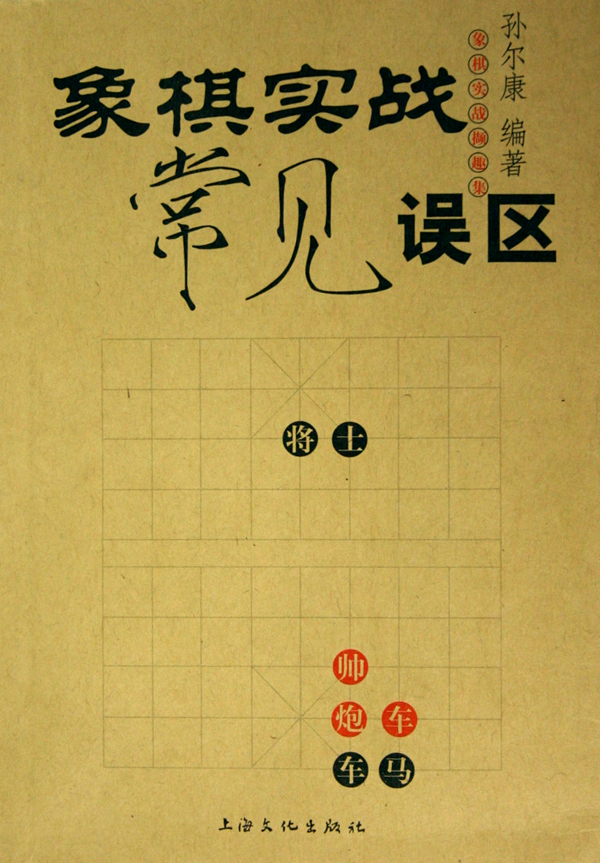 象棋实战
常见误区
象棋实战撷趣集
孙尔康 编著
将士
帅
炮车
车马
上海文化出版社